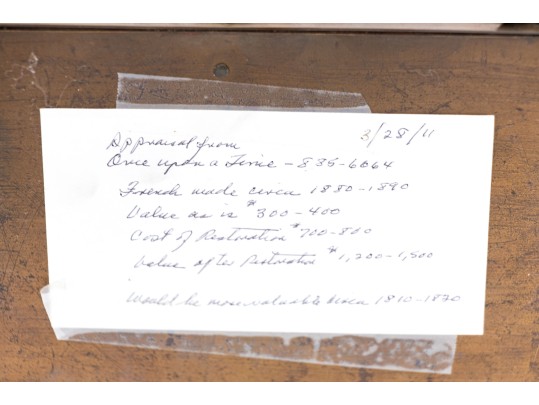 3/28/11
Appraisal from
Once upon a Time - 835-6064
French made circa 1880-1890
Value as is $300-400
Cost of Restoration $700-800
Value after Restoration $1,200-1,500
Would be more valuable circa 1810-1820